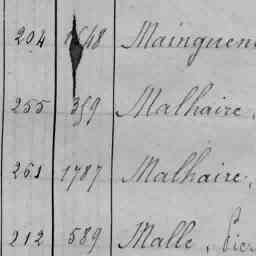 204 1648 Mainguen
255 359 Malhaire,
261 1787 Malhaire,
212 589 Malle, Pier